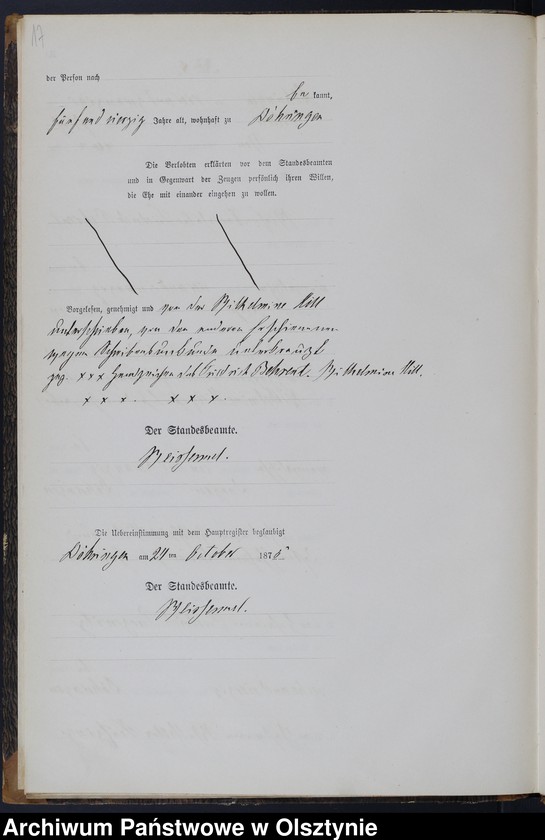 17
der Person nach
be kannt,
fünf und vierzig Jahre alt, wohnhaft zu Döhringen
Die Verlobten erklärten vor dem Standesbeamten
und in Gegenwart der Zeugen persönlich ihren Willen,
die Ehe mit einander eingehen zu wollen.
Vorgelesen, genehmigt und von der Wilhelmine Kill
unterschrieben, von den anderen Erschienenen
wegen Schreibensunkunde unterkreuzt
gez. x x x Handzeichen des Friedrich Behrend. Wilhelmine Kill.
x x x. x x x.
Der Standesbeamte.
Die Uebereinstimmung mit dem Hauptregister beglaubigt
Döhringen am 24 ten October 1875
Der Standesbeamte.
Archiwum Państwowe w Olsztynie